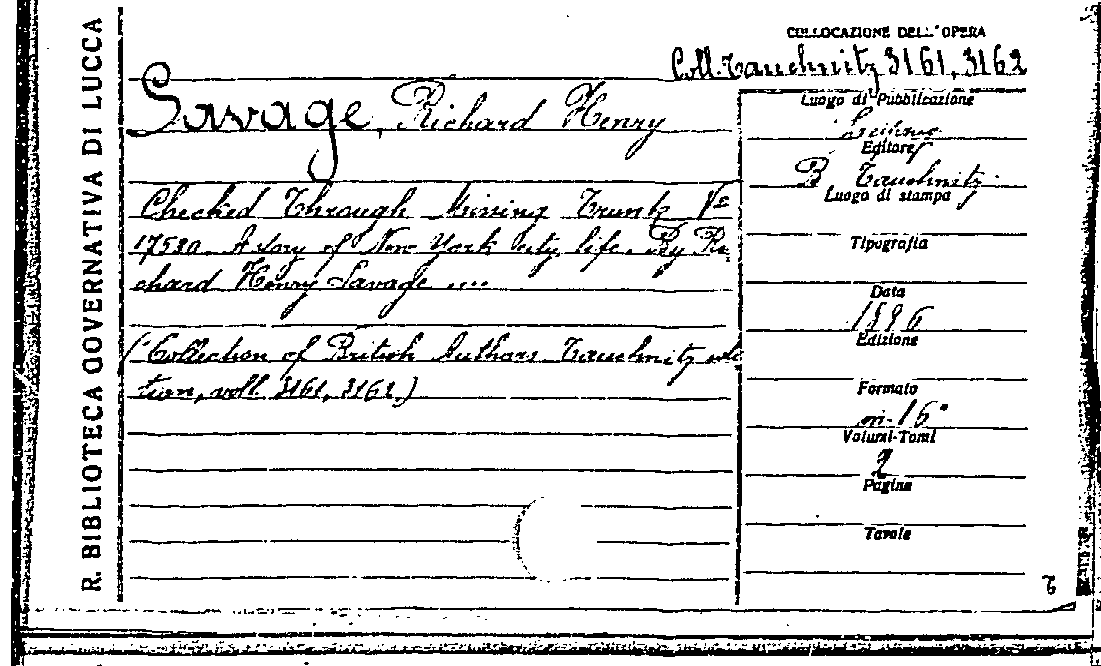 R. BIBLIOTECA GOVERNATIVA DI LUCCA
COLLOCAZIONE DELL'OPERA
Coll. Tauchnitz 3161, 3162
Savage, Richard Henry
Checked Through Missing Trunk
17580. A story of New York city life. By Ri
chard Henry Savage ....
(Collection of British Authors Tauchnitz edi
tion, voll. 3161, 3162.)
Luogo di Pubblicazione
Editore
B Tauchnitz
Luogo di stampa
Tipografia
Data
1896
Edizione
Formato
in-16°
Volumi-Tomi
2
Pagine
Tavole